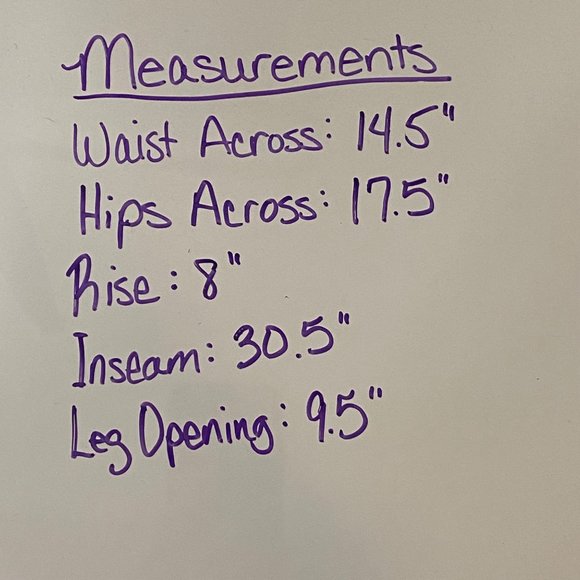 Measurements
Waist Across: 14.5"
Hips Across: 17.5"
Rise: 8"
Inseam: 30.5"
Leg Opening: 9.5"